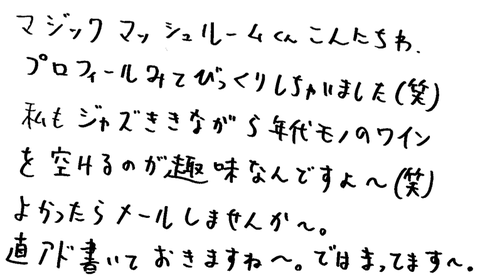 マジックマッシュルームくんこんにちわ.
プロフィールみてびっくりしちゃいました(笑)
私もジャズききながら5年代モノのワイン
を空けるのが趣味なんですよ〜(笑)
よかったらメールしませんか〜。
直アド書いておきますね〜。ではまってます〜.